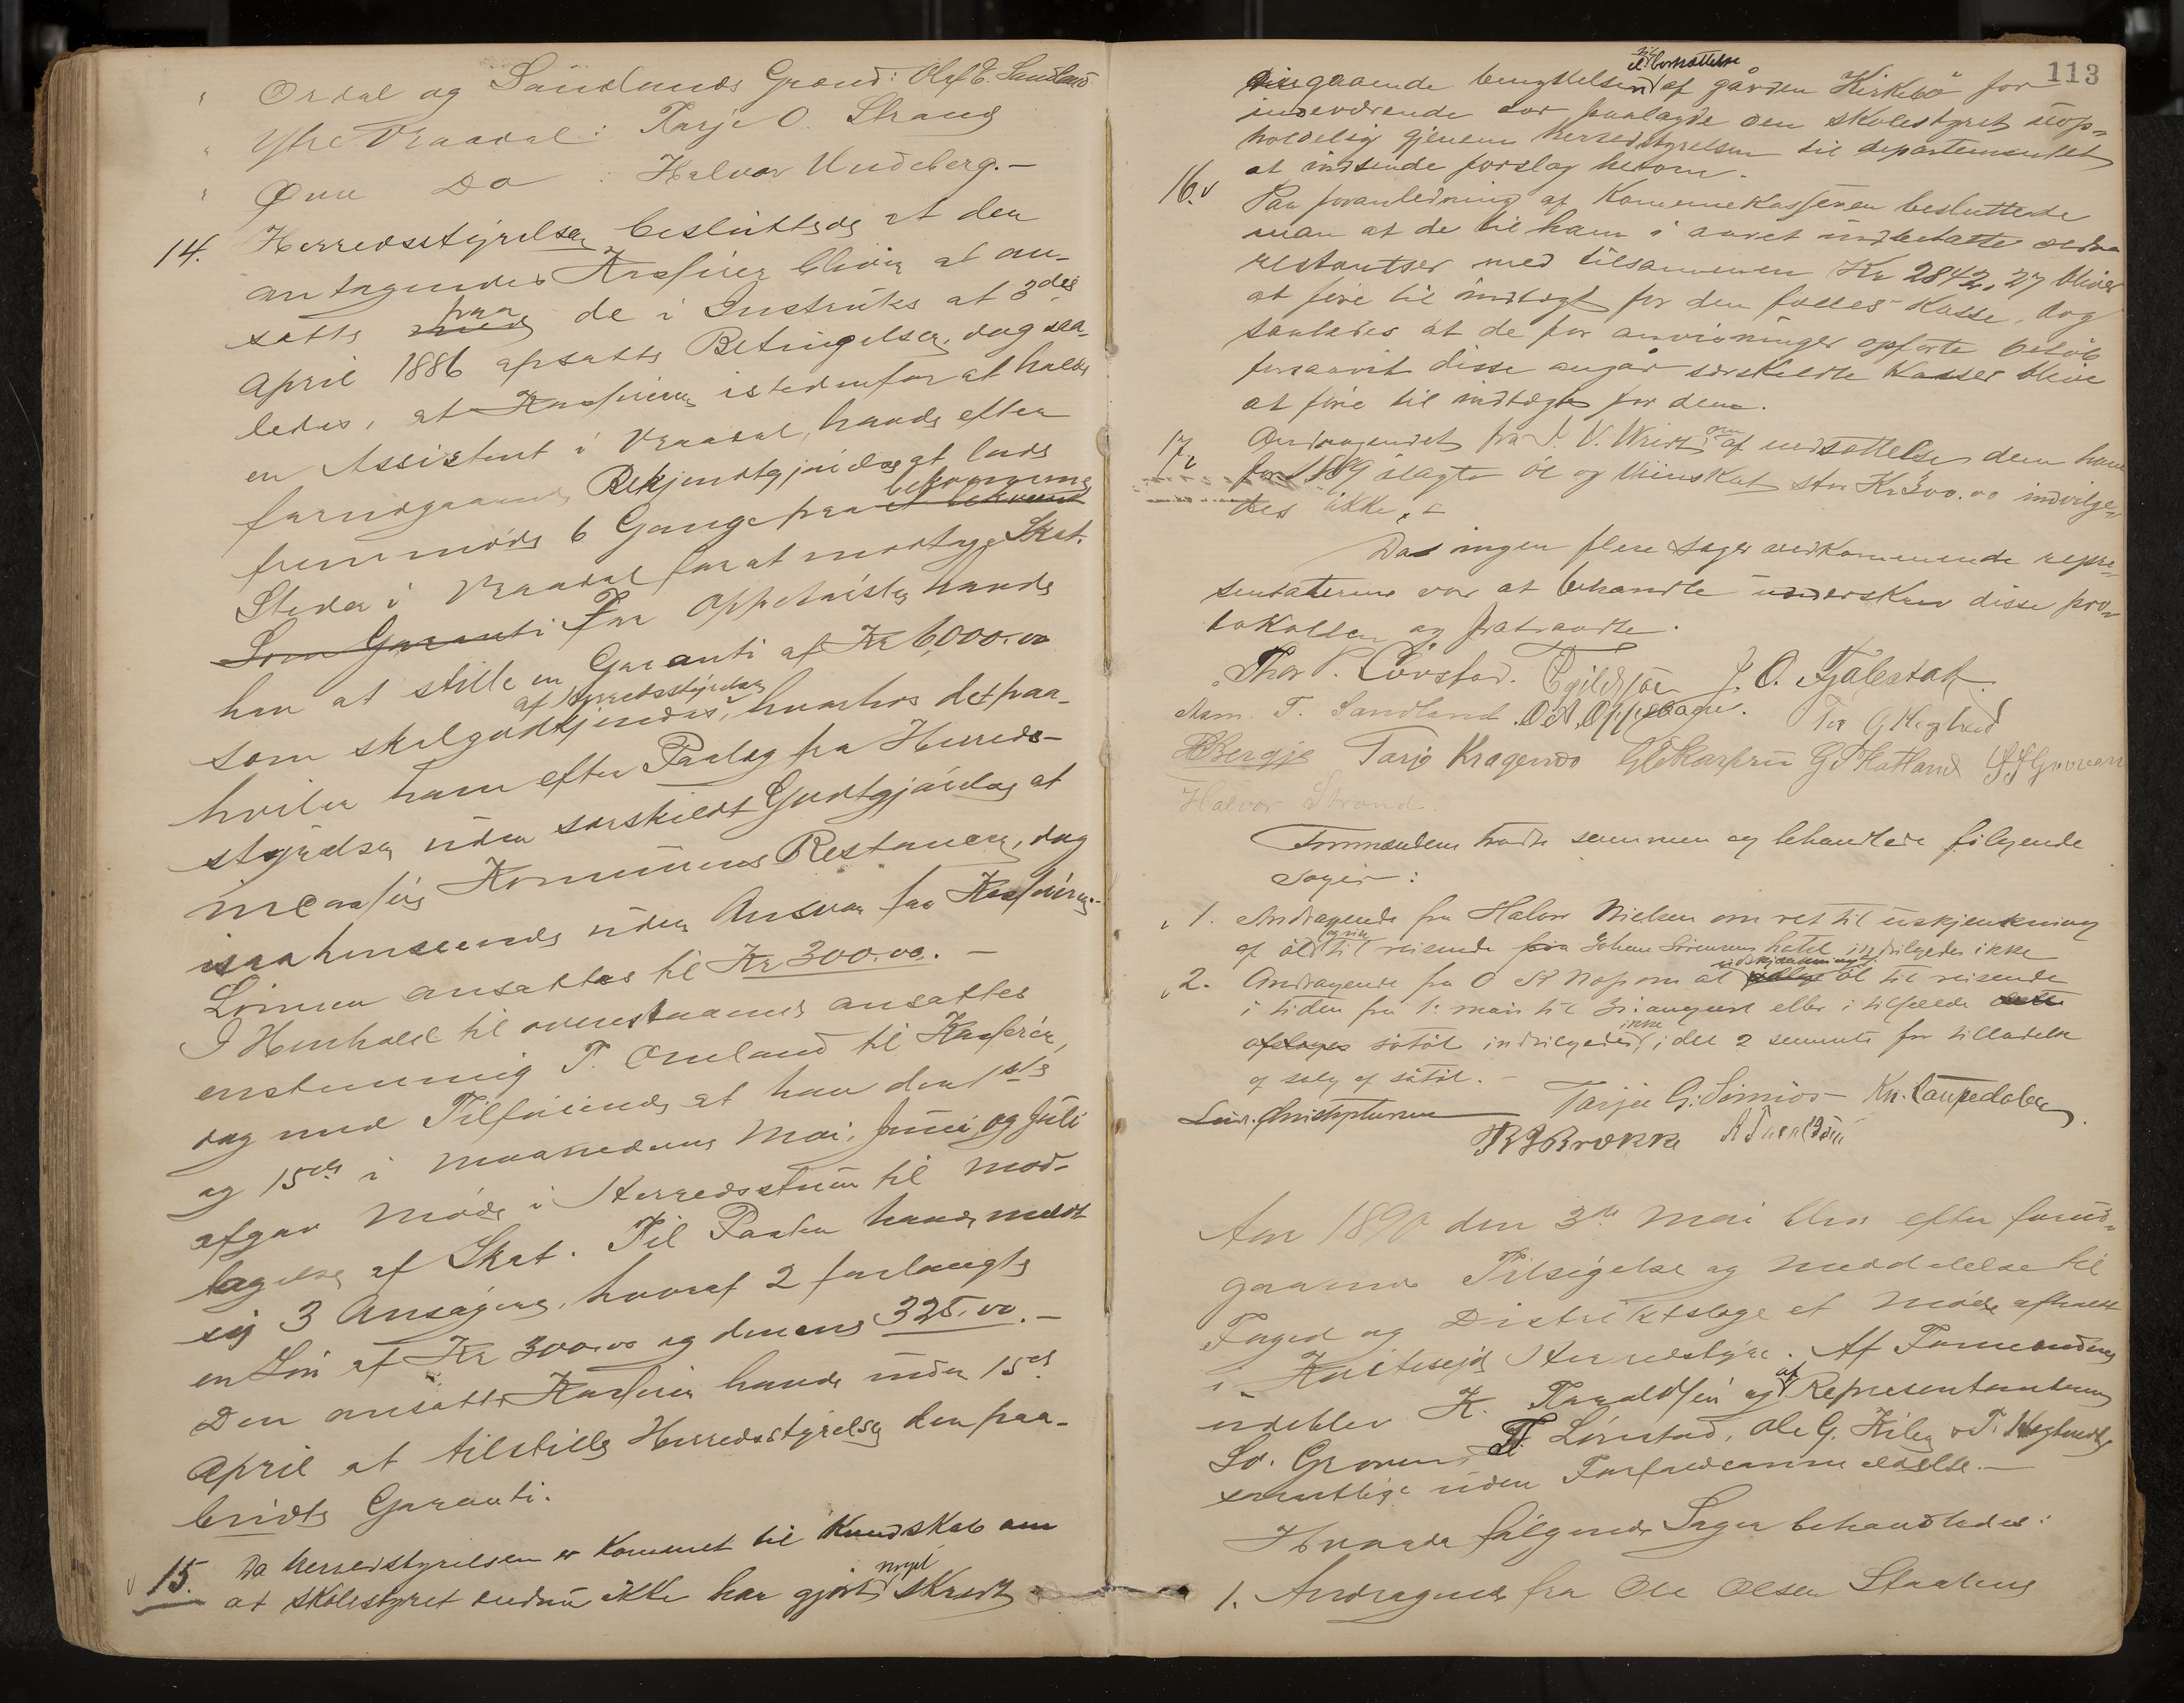 " Ordal og Sandlands Grend: Olaf E. Sandland
" Ytre Vraadal: Tarje O. Strand
" Øvre Do : Halvor Undeberg.-
14. Herredsstyrelsen besluttede at den
antagendes Kasserer bliver at an-
sætte paa de i Instruks at 3die
April 1886 opsatte Betingelser, dog saa-
ledes, at Kassereren istedenfor at holde
en Assistent i Vraadal, havde efter
forudgaaende Bekjendtgjørelse at lade
fremmøde 6 Gange paa bekvemme
Steder i Vraadal for at modtage Skat.
Som Garanti For Oppebørsler havde
han at stille en Garanti af Kr 6000.00
som skal godkjendes af Herredsstyrelsen, hvorhos det paa-
hviler ham efter Paalæg fra Herreds-
styrelsen uden særskildt Godtgjørelse at
incassere Kommunens Restancer, dog
i saa henseende uden Ansvar for Kassereren.-
Lønnen ansattes til Kr 300.00. -
I Henhold til ovenstaaende ansattes
enstemmig T. Omland til Kasserer,
dog med Tilføiende at han den 1ste
og 15de i Maanederne Mai, Juni og Juli
afgav Møde i Herredsstuen til Mod-
tagelse af Skat. Til Posten havde meldt
sig 3 Ansøgere, hvoraf 2 forlangte
en Løn af Kr 300.00 og den ene 325.00.-
Den ansatte Kasserer havde inden 15de
April at tilstille Herredsstyrelsen den paa-
budte Garanti.
15. Da herredstyrelsen er kommet til kundskab om
at skolestyret endnu ikke har gjort noget skridt
113
angaaende benyttelsen af gården Kirkebø for
indeværende aar paalagde den skolestyret uop-
holdelig gjennem herredstyrelsen til departementet
at indsende forslag herom.
16. Paa foranledning af Kommunekassereren besluttede
man at de til ham i aaret indbetalte ældre
restantser med tilsammen Kr 2842,27 bliver
at føre til indtægt for den fælles kasse, dog
saaledes at de for anvisninger opførte beløb
forsaavit disse angår særskildte Kasser blive
at føre til indtægt for dem.
17. Andragendet fra J. V. Wriedt om af nedsættelse dem ham
for 1889 ilagte øl og vinskat stor Kr 300.00 indvilge-
des ikke. -
Da ingen flere sager vedkommende repræ-
sentanterne var at behandle underskrev disse pro-
tokollen og fratraadte.
Thor P. Lønstad. Egildsjøe J. O. Fjalestad.
Aam. T. Sandland. O. A. Oppebøen. Tor G. Heglund
HBergje Tarje Kragenes G. Hatland
Halvor Strand
Formændene traadte sammen og behandlede følgende
sager:
1. Andragende fra Halvor Nielsen om ret til udskjenkning
af øl og vin til reisende fra Johan Sørensens hotel indvilgedes ikke
2. Andragende fra O K Nap om at udskjænkning øl til reisende
i tiden fra 1. mai til 31. august eller i tilfælde
sødøl indvilgedes ikke, idet 2 stemmte for tilladelse
af salg af sødøl. -
Christophersen Tarjei G. Simios Kn. Taupedalen
B J Brokke
Aar 1890 den 3de Mai blev efter forud-
gaaende Tilsigelse og Meddelelse til
Foged og Distriktslæge et Møde afholdt
i Hvitesejd Herredstyre. Af Formændene
udeblev K. Haraldsen og af Repræsentanterne
Sv. Groven, T. Lønstad, Ole G. Kiley & T. Heglund
samtlige uden Forfaldsanmeldelse. -
Hvorda følgende Sager behandledes:
1. Andragende fra Ole Olsen Staaleng